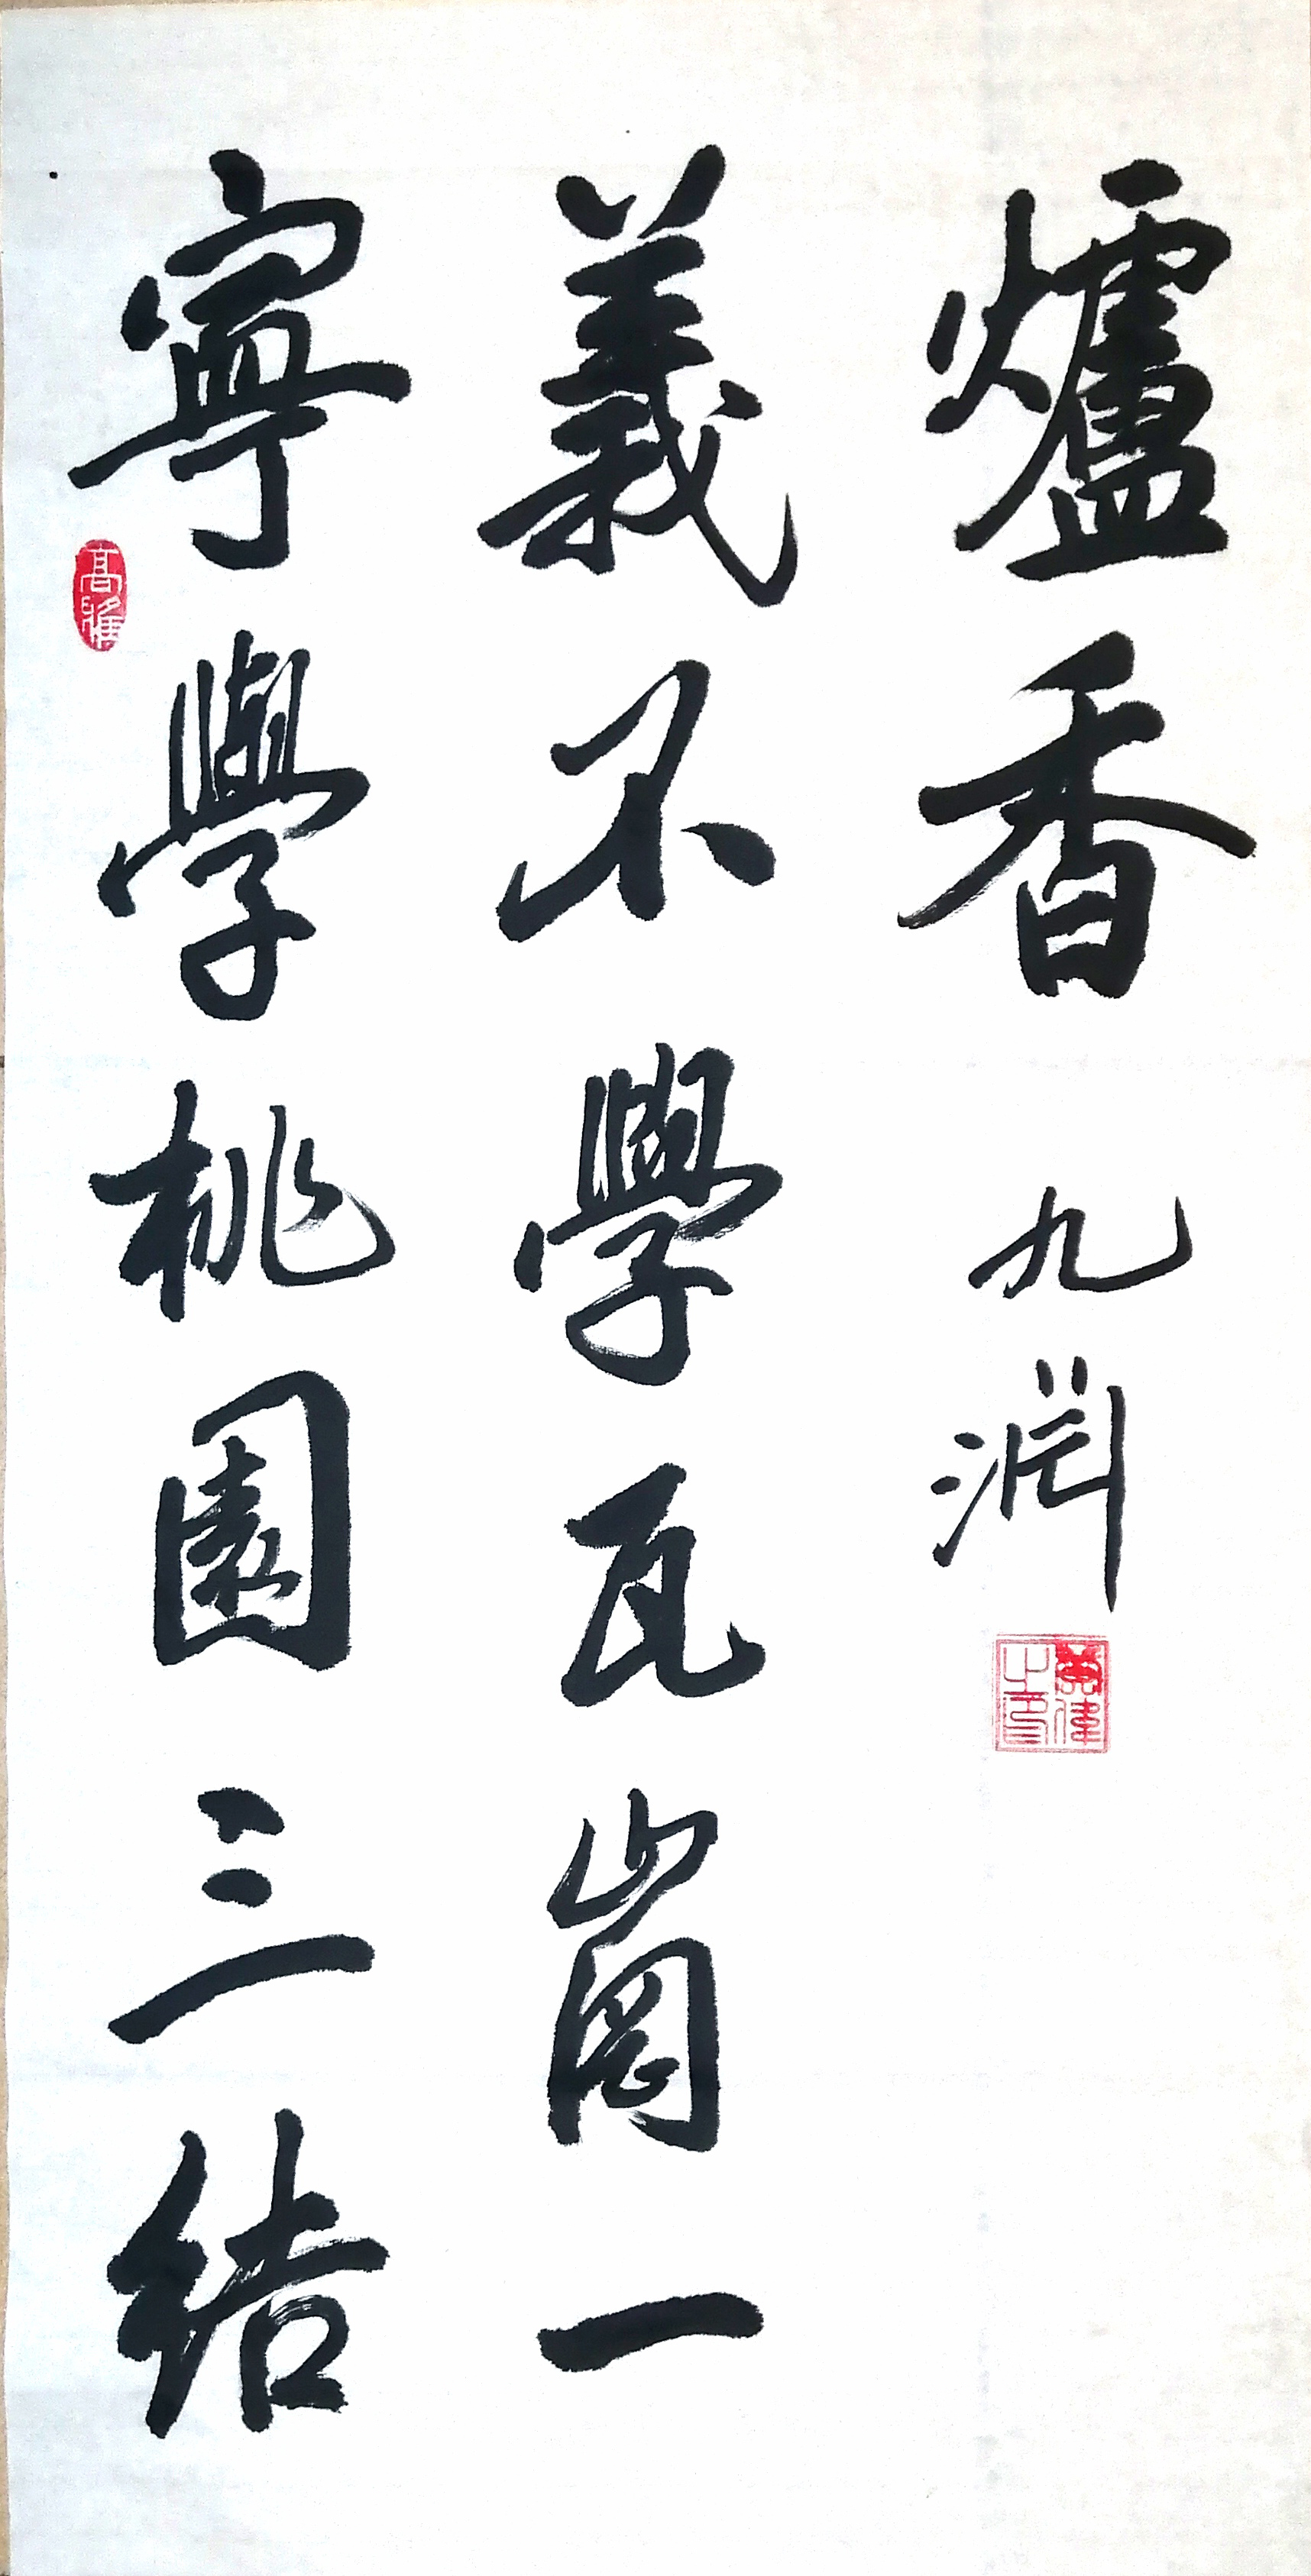 寧學桃園三結
義不學瓦崗一
爐香
九淵
高雅